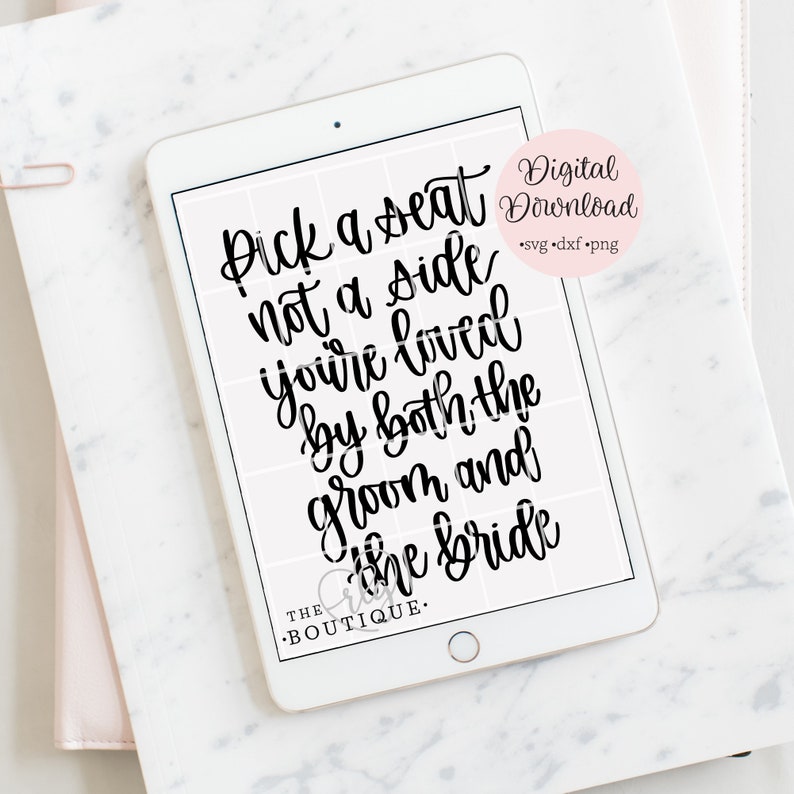 Pick a seat
not a side
you're loved
by both the
groom and
the bride
Digital
Download
•svg •dxf •png
THE
•BOUTIQUE•